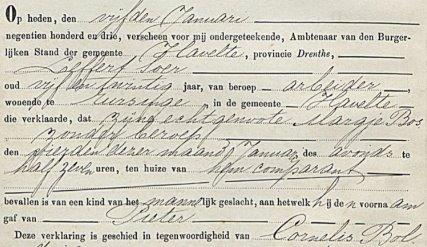 Op heden, den vijfden Januari
negentien honderd en drie, verscheen voor mij ondergeteekende, Ambtenaar van den Burger-
lijken Stand der gemeente Havelte, provincie Drenthe,
Leffert Soer
oud vijf en twintig jaar, van beroep arbeider,
wonende te Uursinge in de gemeente Havelte
die verklaarde, dat zijne echtgenoote Margje Bos
zonder beroep
den dezer maand Januari des avonds te
half zeven uren, ten huize van hem comparant
bevallen is van een kind van het mannelijk geslacht, aan hetwelk hij den voornaam
gaf van Pieter
Deze verklaring is geschied in tegenwoordigheid van Cornelis Bol